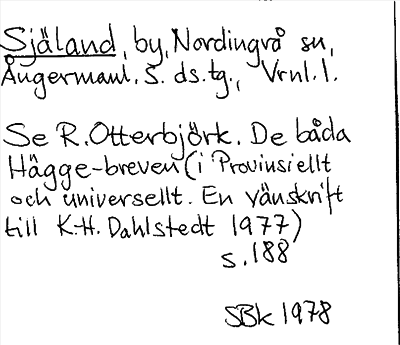 Själand, by, Nordingrå sn,
Ångermanl. s. ds.tg., Vrnl.l.
Se R. Otterbjörk. De båda
Hägge-breven (i Provinsiellt
och universellt. En vänskrift
till K.-H. Dahlstedt 1977)
s. 188
SBk 1978